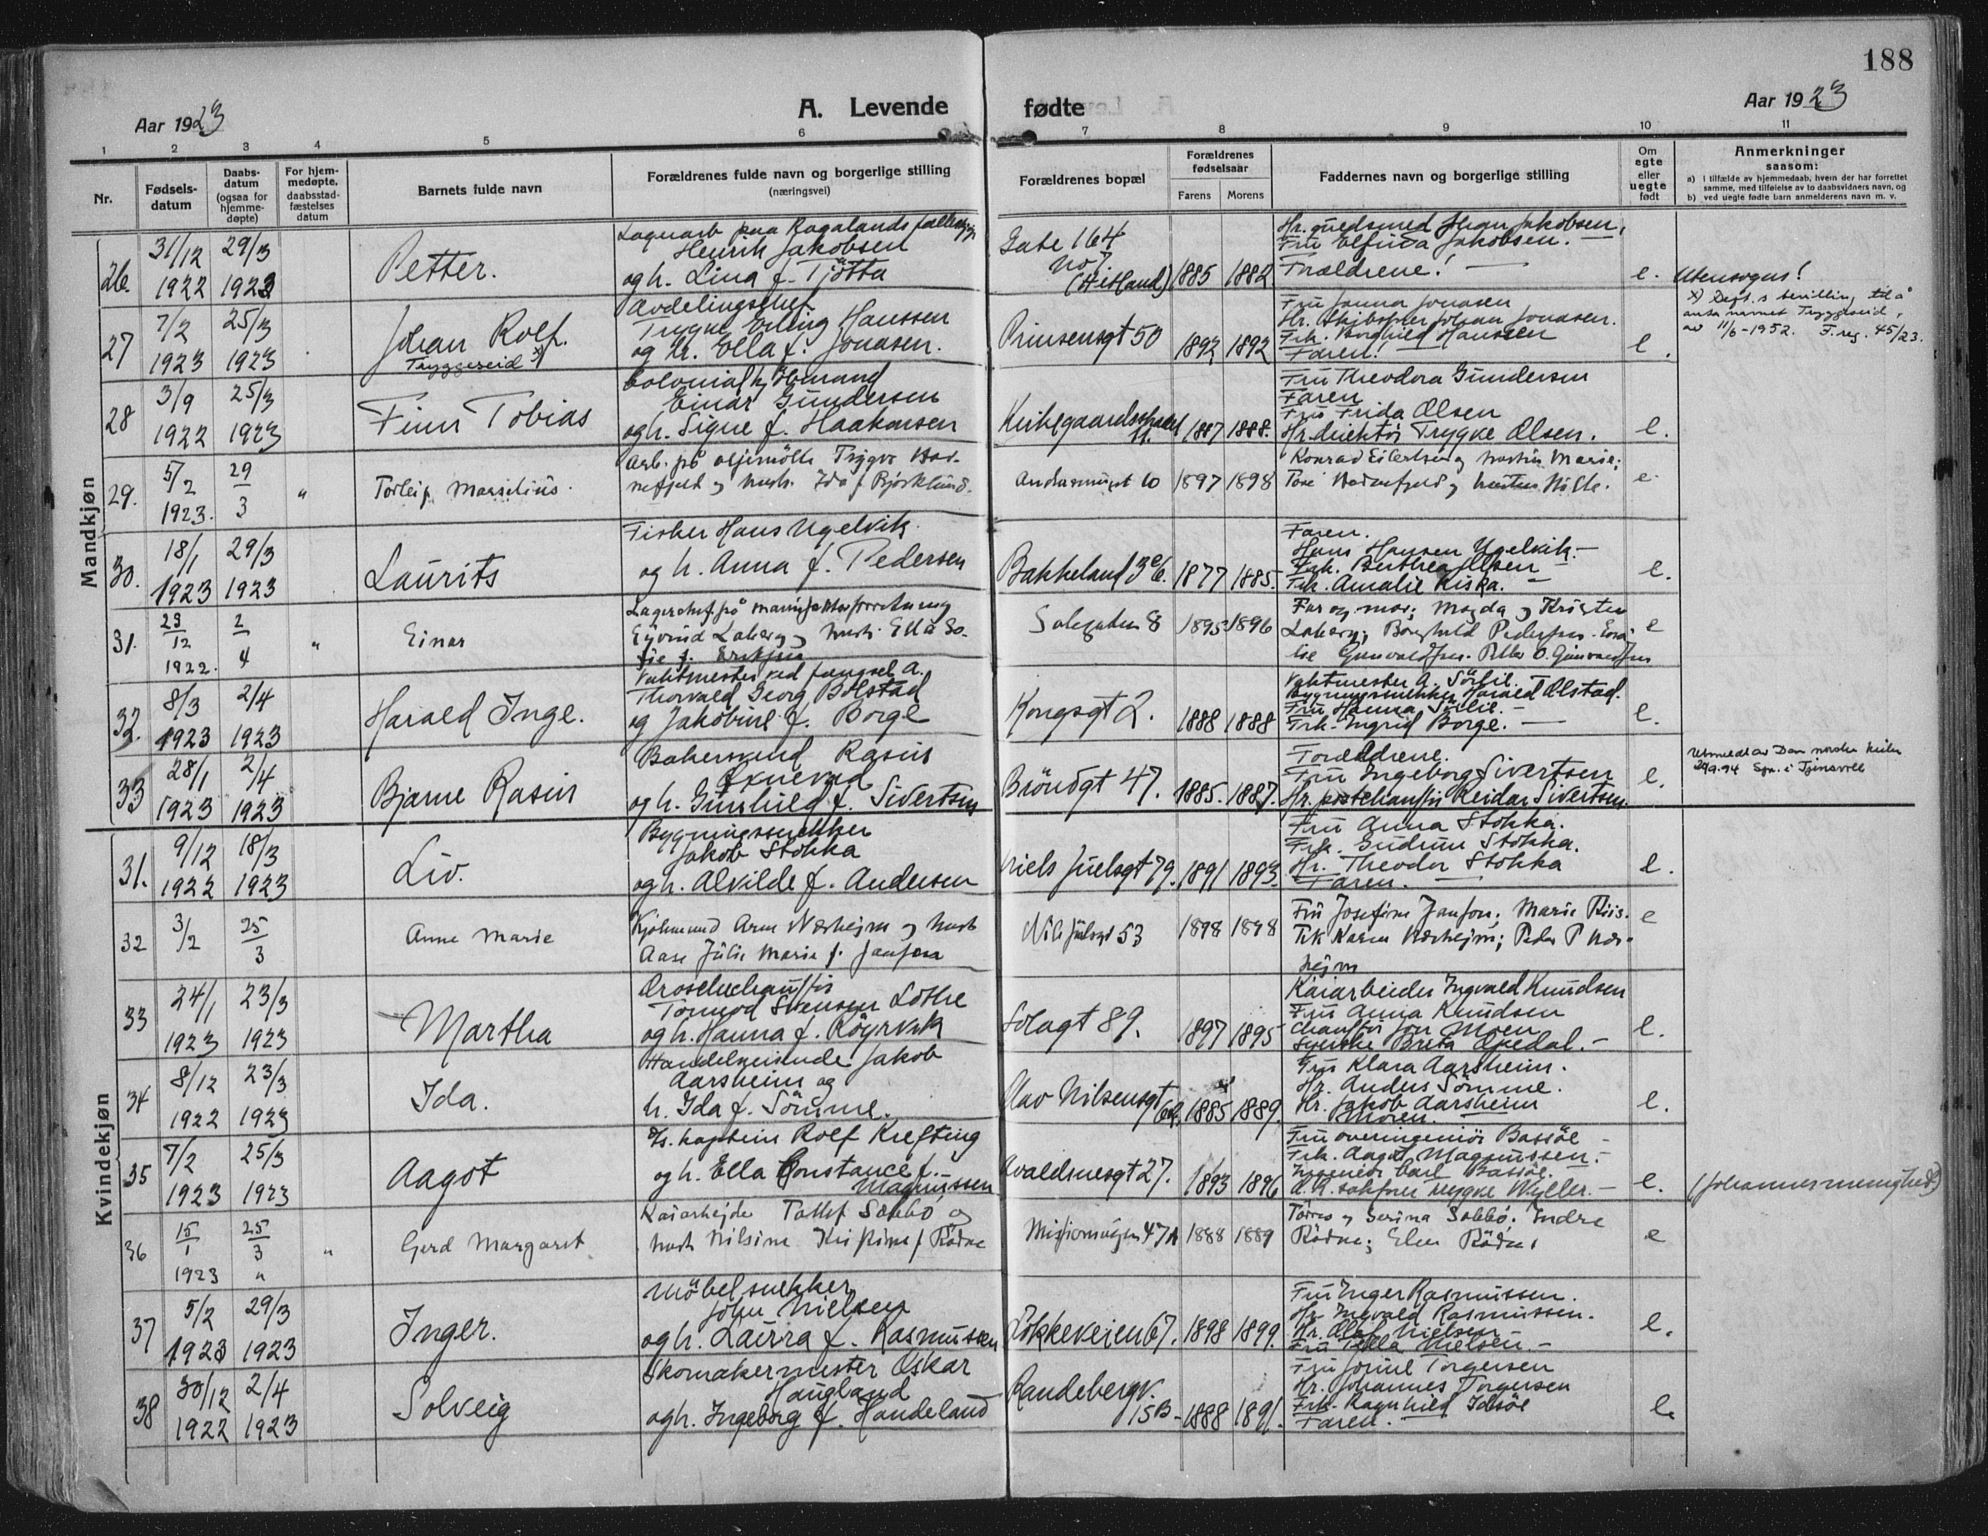 188
Aar 1923
A. Levende
fødte
Aar 1923
1 2 3 4 5 6 7 8 9 10 11
Nr.
Fødsels-
datum
Daabs-
datum
(ogsaa for
hjemme-
døpte)
For hjem-
medøpte,
daabsstad-
fæstelses
datum
Barnets fulde navn
Forældrenes fulde navn og borgerlige stilling
(næringsvei)
Forældrenes bopæl
Forældrenes
fødselsaar
Farens Morens
Faddernes navn og borgerlige stilling
Om
egte
eller
uegte
født
Anmerkninger
saasom:
a) I tilfælde av hjemmedaab, hvem der har forrettet
samme, med tilføielse av to daabsvidners navn, og
b) ved uegte fødte barn anmelderens navn m. v.
Mandkjøn
26.
31/12
1922
29/3
1923
Petter.
Lagerarb paa Rogalands
Henrik Jakobsen
og h. Lina f. Tjötta
Gate 164
No 7
(Hetland)
1885 1882
Johan Jakobsen,
Fru Elfina Jakobsen.
Forældrene!
e.
Utensogns!
27
7/2
1923
25/3
1923
Johan Rolf.
Tryggeseid x)
Avdelingschef
Trygve Erling Hanssen
og h. Ella f. Jonasen.
Prinsensgt 50
1892 1892
Fru Janna Jonasen
Hr. Skibsfører Johan Jonasen.
Frk. Borghild Hanssen
Faren!
e.
x) Dept.s bevilling til å
anta navnet Tryggeseid,
av 11/6-1952. F. reg. 45/23.
28
3/9
1922
25/3
1923
Finn Tobias
Einar Gundersen
og h. Signe f. Haakonsen
11.
1887 1888.
Fru Theodora Gundersen
Faren
Fru Frida Olsen
Hr. direktör Trygve Olsen.
e.
29.
5/2
1923.
29
3
"
Torleif Marselius.
Arb. på oljemölle Trygve Had-
nefjeld og hustr. Ida f. Bjørklund.
10
1897 1898
Konrad Eilertsen og hustru Marie;
e.
30.
18/1
1923
29/3
1923
Laurits
Fisker Hans Ugelvik.
og h. Anna f. Pedersen
Bakkeland
1877 1885.
Faren.
Hans Hansen Ugelvik.
Frk. Berthea Olsen
Frk. Amalie Kiska.
e.
31.
23
12
1922.
2
4
"
Einar
Eyvind Laberg og hustr. Ella So-
fie f. Eriksen
8
1895 1896
Far og mor; Magda og Kristen
Laberg; Borghild Pedersen.
e
32.
8/3
1923
2/4
1923
Harald Inge.
Vaktmester ved fængsel A.
Thorvald Georg Bolstad
og Jakobine f. Borge
Kongsgt 2.
1888 1888
Vaktmester A. Sörlie.
Bygningssnekker Harald Tolstad.
Fru Hanna Sörlie.
Frk. Ingrid Borge.
e.
33
28/1
1923
2/4
1923
Bjarne Rasin
Bakersvend Rasin
Oxnevad
og h. Gunhild f. Sivertsen
Bröndgt 47.
1885. 1887.
Forældrene.
Fru Ingeborg Sivertsen
Hr. Reidar Sivertsen
e.
Utmeldt av Den norske kirke
Kvindekjøn
31.
9/12
1922
18/3
1923
Liv.
Bygningssnekker
Jakob Stokka
og h. Alvilde f. Andersen
Niels Juelsgt 79.
1891 1893.
Fru Anna Stokka.
Frk. Gudrun Stokka.
Hr. Theodor Stokka
Faren.
e.
32
3/2
25
3
Anne Marie
Kjøbmand Arne Nærheim og hustr
Aase Julie Marie f. Jansen
Nils Juelsgt 53
1898 1898
Fru Josefine Jansen; Marie Riis.
Frk Karen Nærheim; Peder P Nær-
heim
e
33
24/1
1923
23/3
1923
Martha
Droschechauffør
Tormod Svensen Lothe
og h. Hanna f. Röyrvik
Solagt 89.
1897 1895
Kaiarbeider Ingvald Knudsen
Fru Anna Knudsen
Chauffør Jon Moen
e.
34
8/12
1922
23/3
1923
Ida.
Handelsreisende Jakob
Aarsheim og
h. Ida f. Sömme.
Olav Nilsensgt
1885 1889.
Fru Klara Aarsheim.
Hr. Anders Sömme.
Hr. Jakob Aarsheim
Moren.
e.
35
7/2
1923
25/3
1923
Aagot
Rolf Krefting
og h. Ella Constance f.
Magnussen
Avaldsnesgt 27.
1893 1896
Fru overingeniör Bassöe
Frk. Aagot Magnussen.
Ingeniör Carl Bassöe.
O.R. sakfører Trygve Wyller.
e.
(Johannesmenighed)
36
15
1
1923
25
3
"
"
Gerd Margaret
Kaiarbejde Tollef Søbbø og
hustr Nilsine Kristine f Rödne
Misjonsveien 47A
1888 1889
Tørres og Serina Søbbø; Endre
Rödne; Elen Rödne.
e
37
5/2
1923
29/3
1923
Inger.
Möbelsnekker
John Nielsen
og h. Laura f. Rasmussen
Lökkeveien 67.
1898 1899.
Fru Inger Rasmussen.
Hr. Ingvald Rasmussen.
Hr. Olaf Nielsen
Fru Tella Nielsen.
e.
38
30/12
1922
2/4
1923
Solveig
Skomakermester Oskar
Haugland
og h. Ingeborg f. Handeland
Randebergv.
15B
1888 1891.
Fru Jorine Torgersen
Hr. Johannes Torgersen
Frk. Ragnhild Idsöe
Faren.
e.